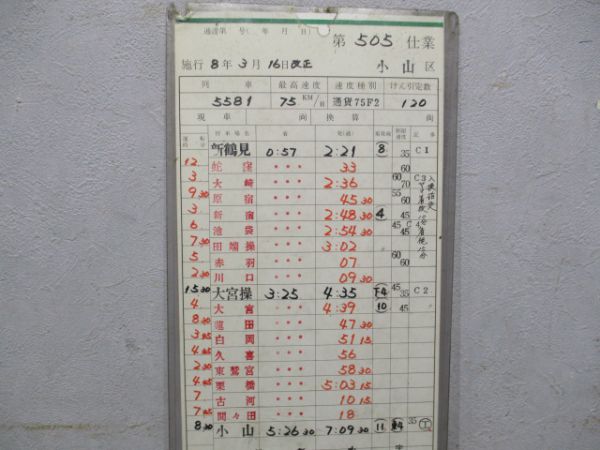 達第 号( 年 月 日)
第 505 仕業
施行 8 年 3 月 16日改正 小山 区
列車 最高速度 速度種別 けん引定数
5581 75 KM/H 通貨75F2 120
現車 両 換算 両
運転時分 停車場名 着 発(通) 着発線 制限速度 記事
新鶴見 0:57 2:21 (8) 35 C1
12 蛇窪 ・・・ 33 60
3 大崎 ・・・ 2:36 60 70 C3
9 30 原宿 ・・・ 45 30 55 60
3 新宿 ・・・ 2:48 30 (4) 45
6 池袋 ・・・ 2:54 30 45 45 C4
7 30 田端操 ・・・ 3:02
5 赤羽 ・・・ 07 60 60
2 30 川口 ・・・ 09 30
15 30 大宮操 3:25 4:35 下4 45 35 C2
4 大宮 ・・・ 4:39 (10) 45
8 30 蓮田 ・・・ 47 30
3 45 白岡 ・・・ 51 15
4 45 久喜 ・・・ 56
2 30 東鷲宮 ・・・ 58 30
4 45 栗橋 ・・・ 5:03 15
7 古河 ・・・ 10 15
7 45 間々田 ・・・ 18
8 30 小山 5:26 30 7:09 30 (11) 35